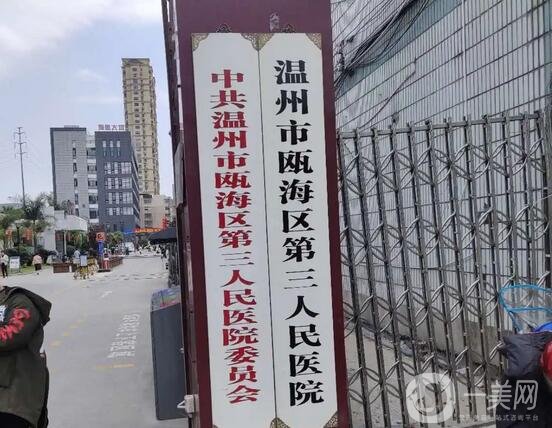 温州市瓯海区第三人民医院
中共温州市瓯海区第三人民医院委员会
一美网